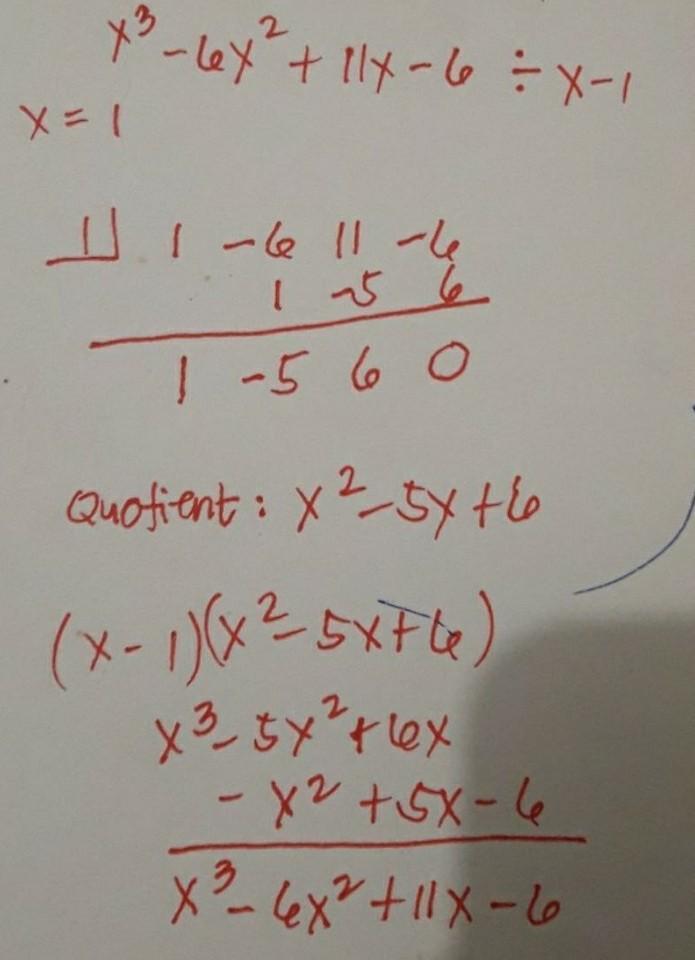 x³ - 6x² + 11x - 6 ÷ x - 1
x = 1
1 1 -6 11 -6
1 -5 6
1 -5 6 0
Quotient: x² - 5x + 6
(x - 1)(x² - 5x + 6)
x³ - 5x² + 6x
- x² + 5x - 6
x³ - 6x² + 11x - 6